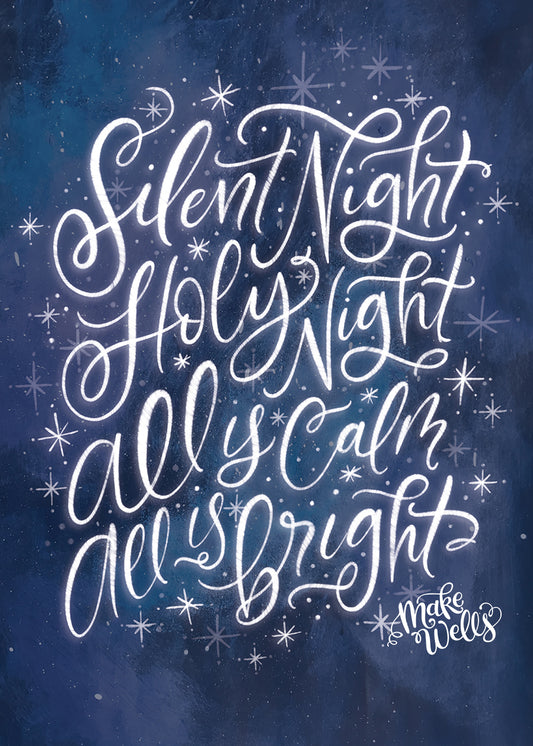 Silent Night
Holy Night
All is Calm
All is bright
Make
Wells